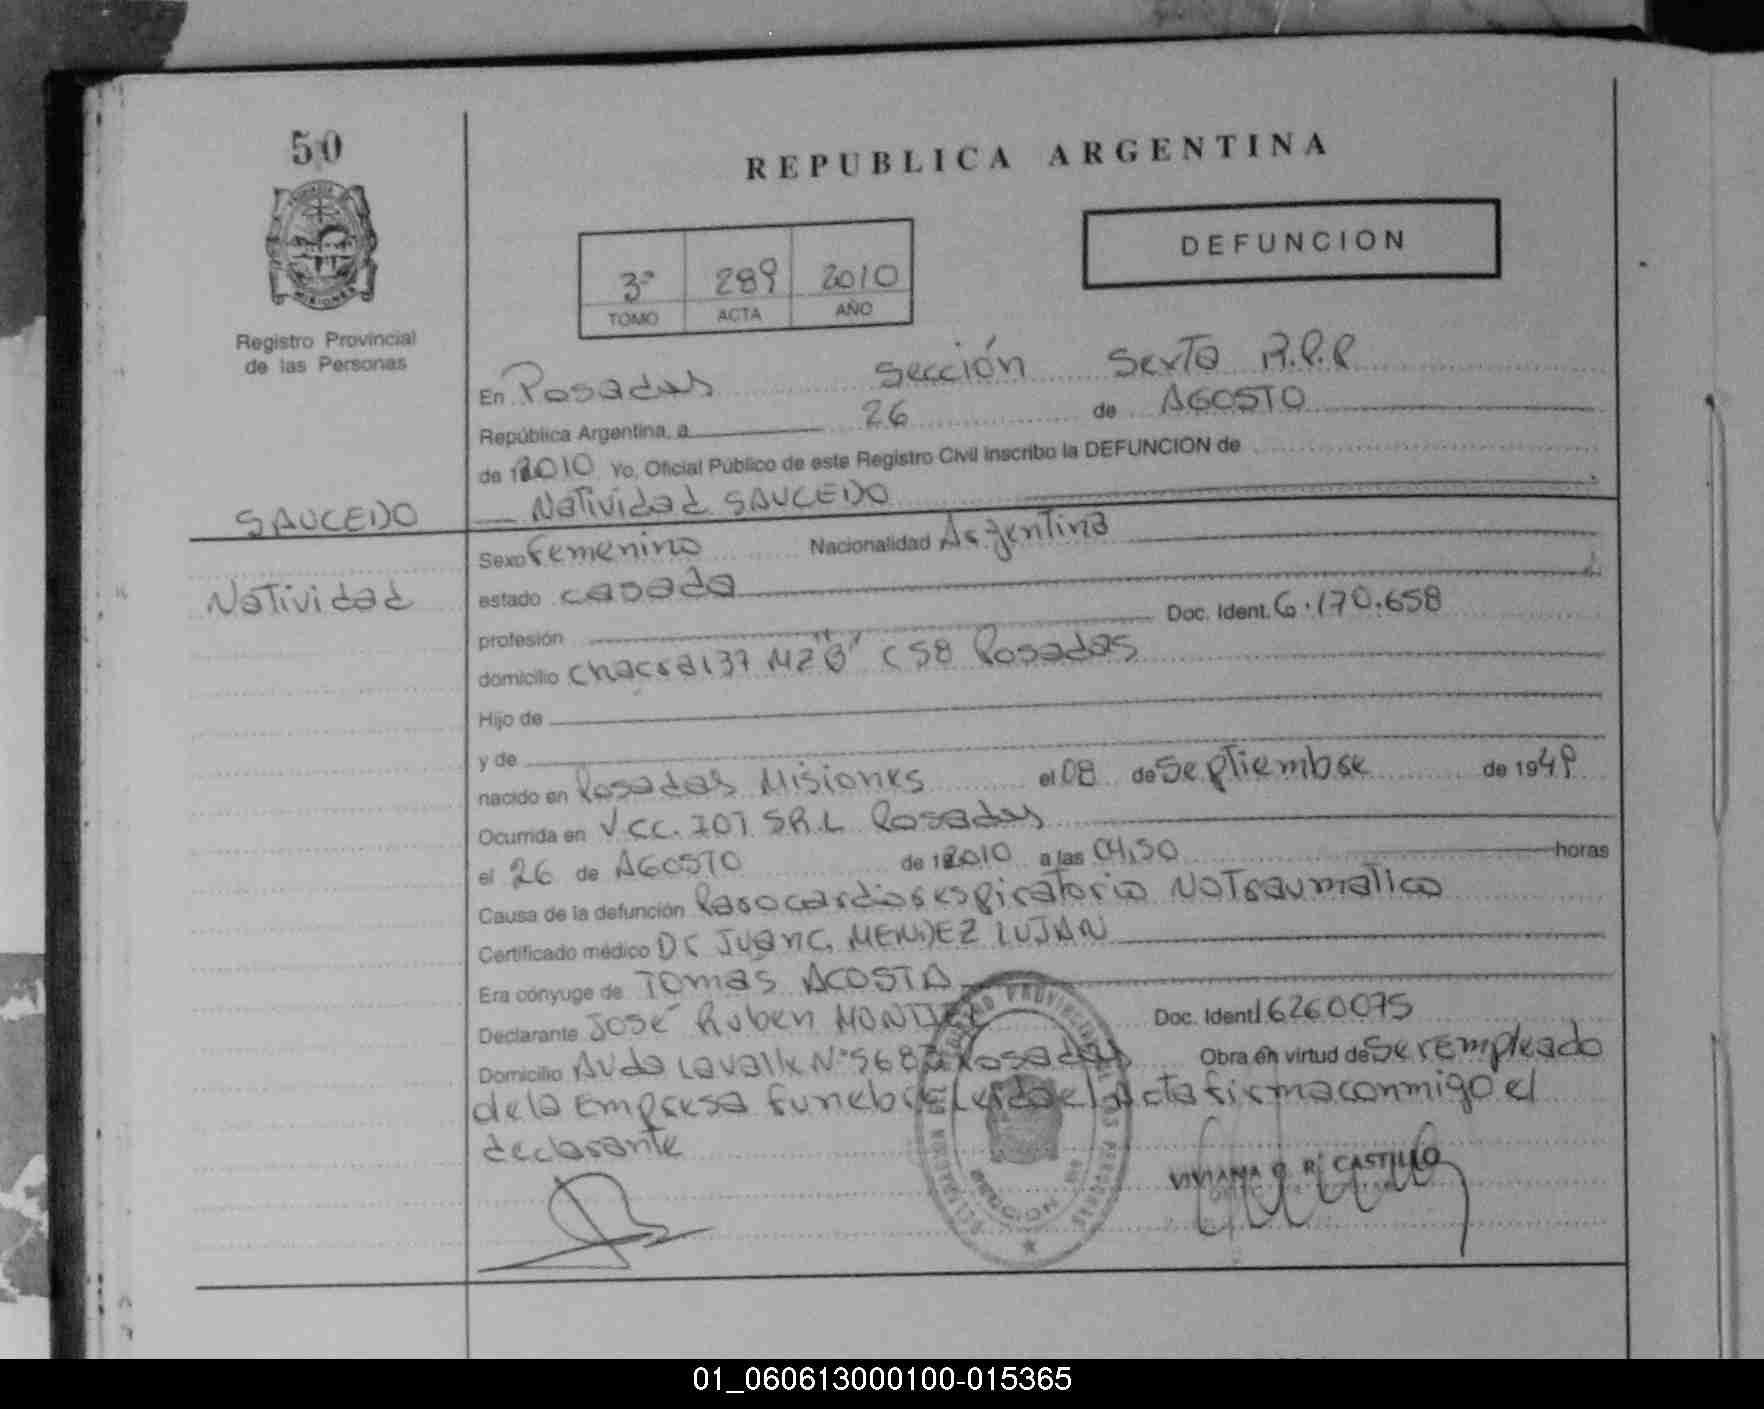 50
REPUBLICA ARGENTINA
DEFUNCION
3º 289 2010
TOMO ACTA AÑO
MISIONES
Registro Provincial
de las Personas
En Posadas Sección Sexta R.P.P
República Argentina, a 26 de AGOSTO
de 2010 Yo, Oficial Público de este Registro Civil inscribo la DEFUNCION de
SAUCEDO
Natividad SAUCEDO
Sexo Femenino Nacionalidad Argentina
Natividad
estado casada
profesión Doc. Ident. 6.170.658
domicilio Chacra 137 MZ "B" C 58 Posadas
Hijo de
y de
nacido en Posadas Misiones el 08 de Septiembre de 1949
Ocurrida en V.CC. 701 S.R.L Posadas
el 26 de AGOSTO de 2010 a las 04,50 horas
Causa de la defunción Paro cardiorespiratorio No Traumatico
Certificado médico Dr Juan C. MENDEZ LUJAN
Era cónyuge de Tomas ACOSTA
Declarante José Ruben Doc. Ident 16260075
Domicilio Avda Lavalle Nº Posadas Obra en virtud de Ser empleado
de la Empresa funebre Leida el Acta firma conmigo el
declarante
VIVIANA R. CASTILLO
01_060613000100-015365